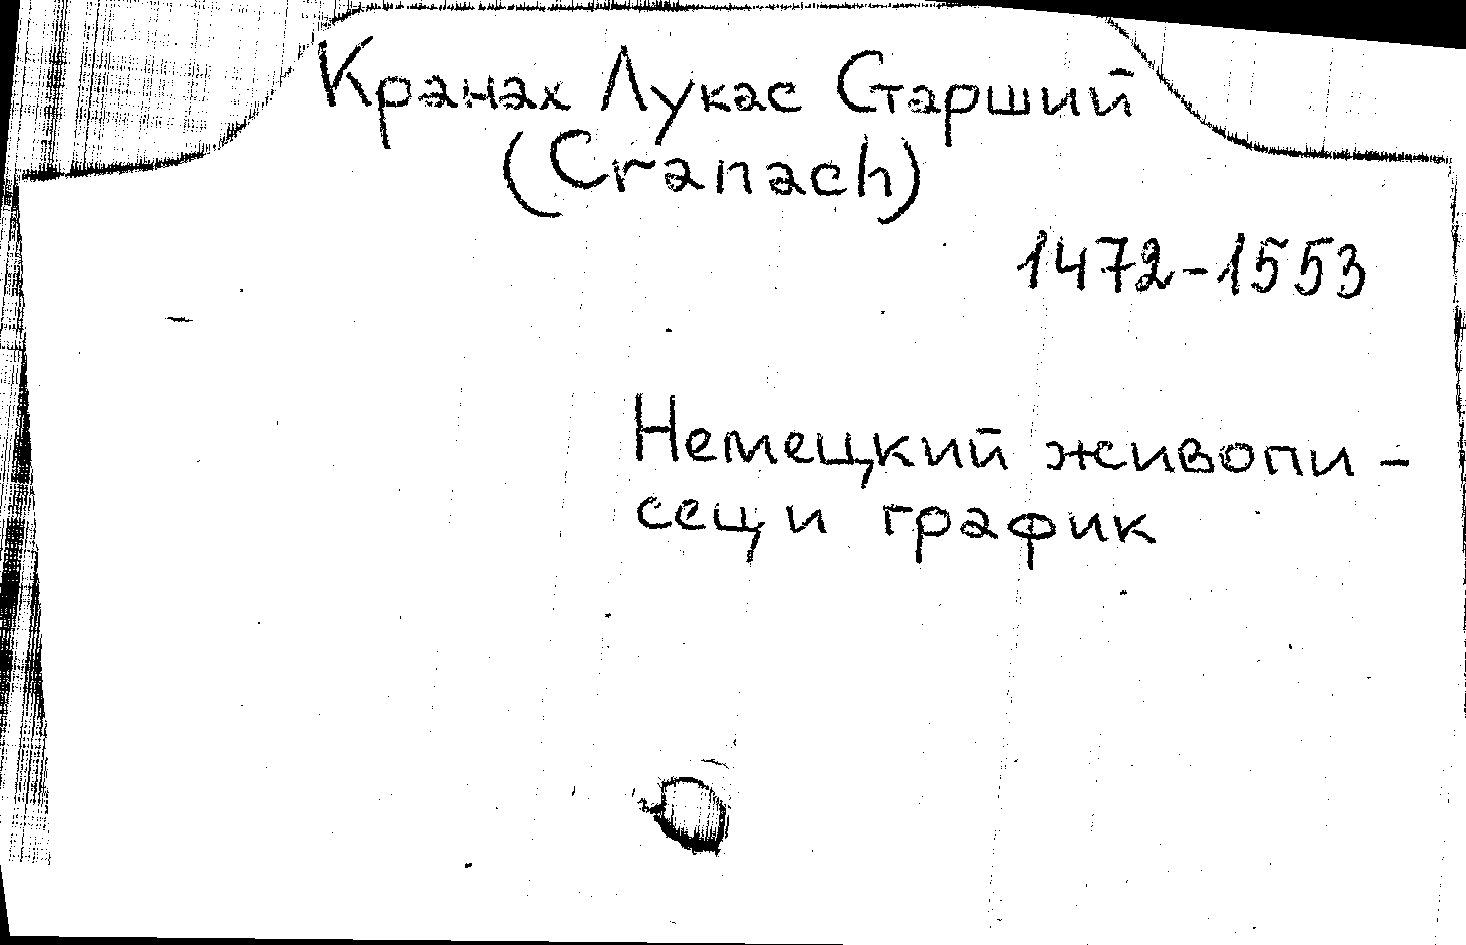 Кранах Лукас Старший
(Cranach)
1472-1553
Немецкий живопи-
сец и график